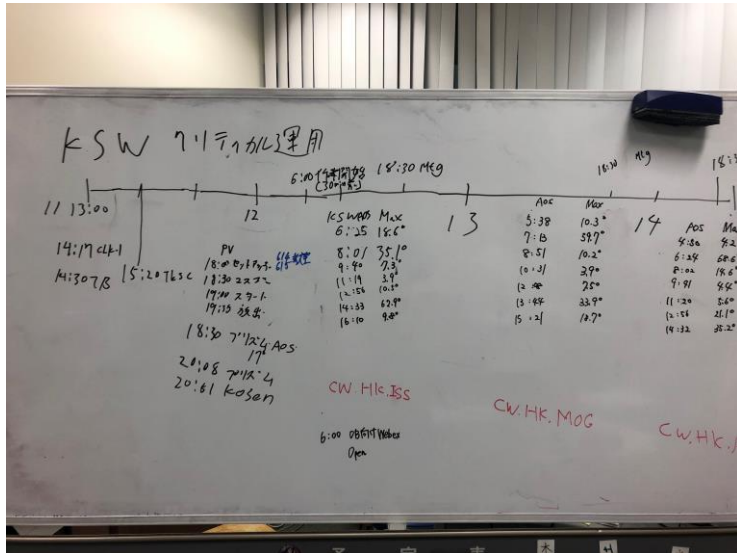 KSW クリティカル運用
6:00 作業開始
(30min前)
18:30 Mtg
18:30 Mtg
18:3
11 13:00
12
13
14
14:17 CLK-1
14:30 TB
15:20 TBSC
PV
18:00 セットアップ
18:30 リスコン
19:00 スタート
19:15 放出
18:30 プリズム AOS
17°
20:08 プリズム
20:01 Kosen
KSW AOS Max
6:25 18.6°
8:01 35.1°
9:40 7.3°
11:19 3.9°
12:56 10.3°
14:33 62.9°
16:10 9.8°
AOS Max
5:38 10.3°
7:13 59.7°
8:51 10.2°
10:31 3.9°
7.5°
13:44 33.9°
15:21 13.7°
AOS Ma
4:50 4.2
6:24 68.6
8:02 14.6°
9:41 4.4°
11:20 5.6°
12:56 21.1°
14:32 35.2°
CW.HK.ISS
CW.HK.MOG
CW.HK.
6:00 Webex
Open